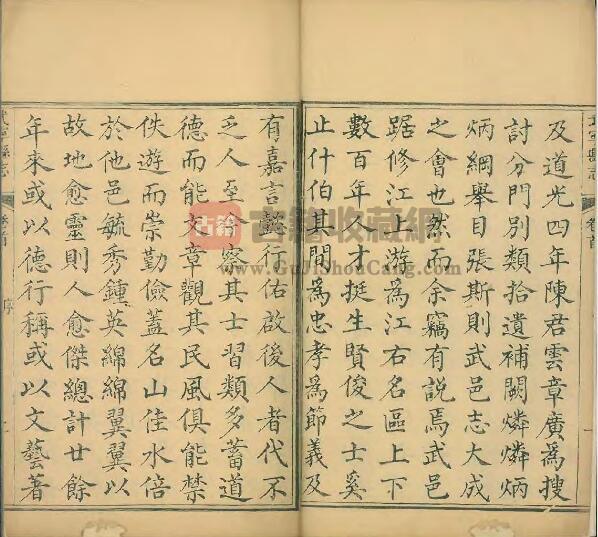 及道光四年陳君雲章廣爲搜
討分門別類拾遺補闕燐燐炳
炳綱舉目張斯則武邑志大成
之會也然而余竊有說焉武邑
踞修江上游爲江右名區上下
數百年人才挺生賢俊之士奚
止什伯其間爲忠孝爲節義及
有嘉言懿行佑啟後人者代不
乏人至若察其士習類多蓄道
德而能文章觀其民風俱能禁
佚遊而崇勤儉蓋名山佳水倍
於他邑毓秀鍾英綿綿翼翼以
故地愈靈則人愈傑總計廿餘
年來或以德行稱或以文藝著
武寧縣志
卷首
序
古籍
古籍收藏網
www.GuJiShouCang.com